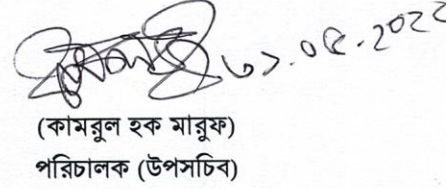 ৩১.০৫.২০২২
(কামরুল হক মারুফ)
পরিচালক (উপসচিব)